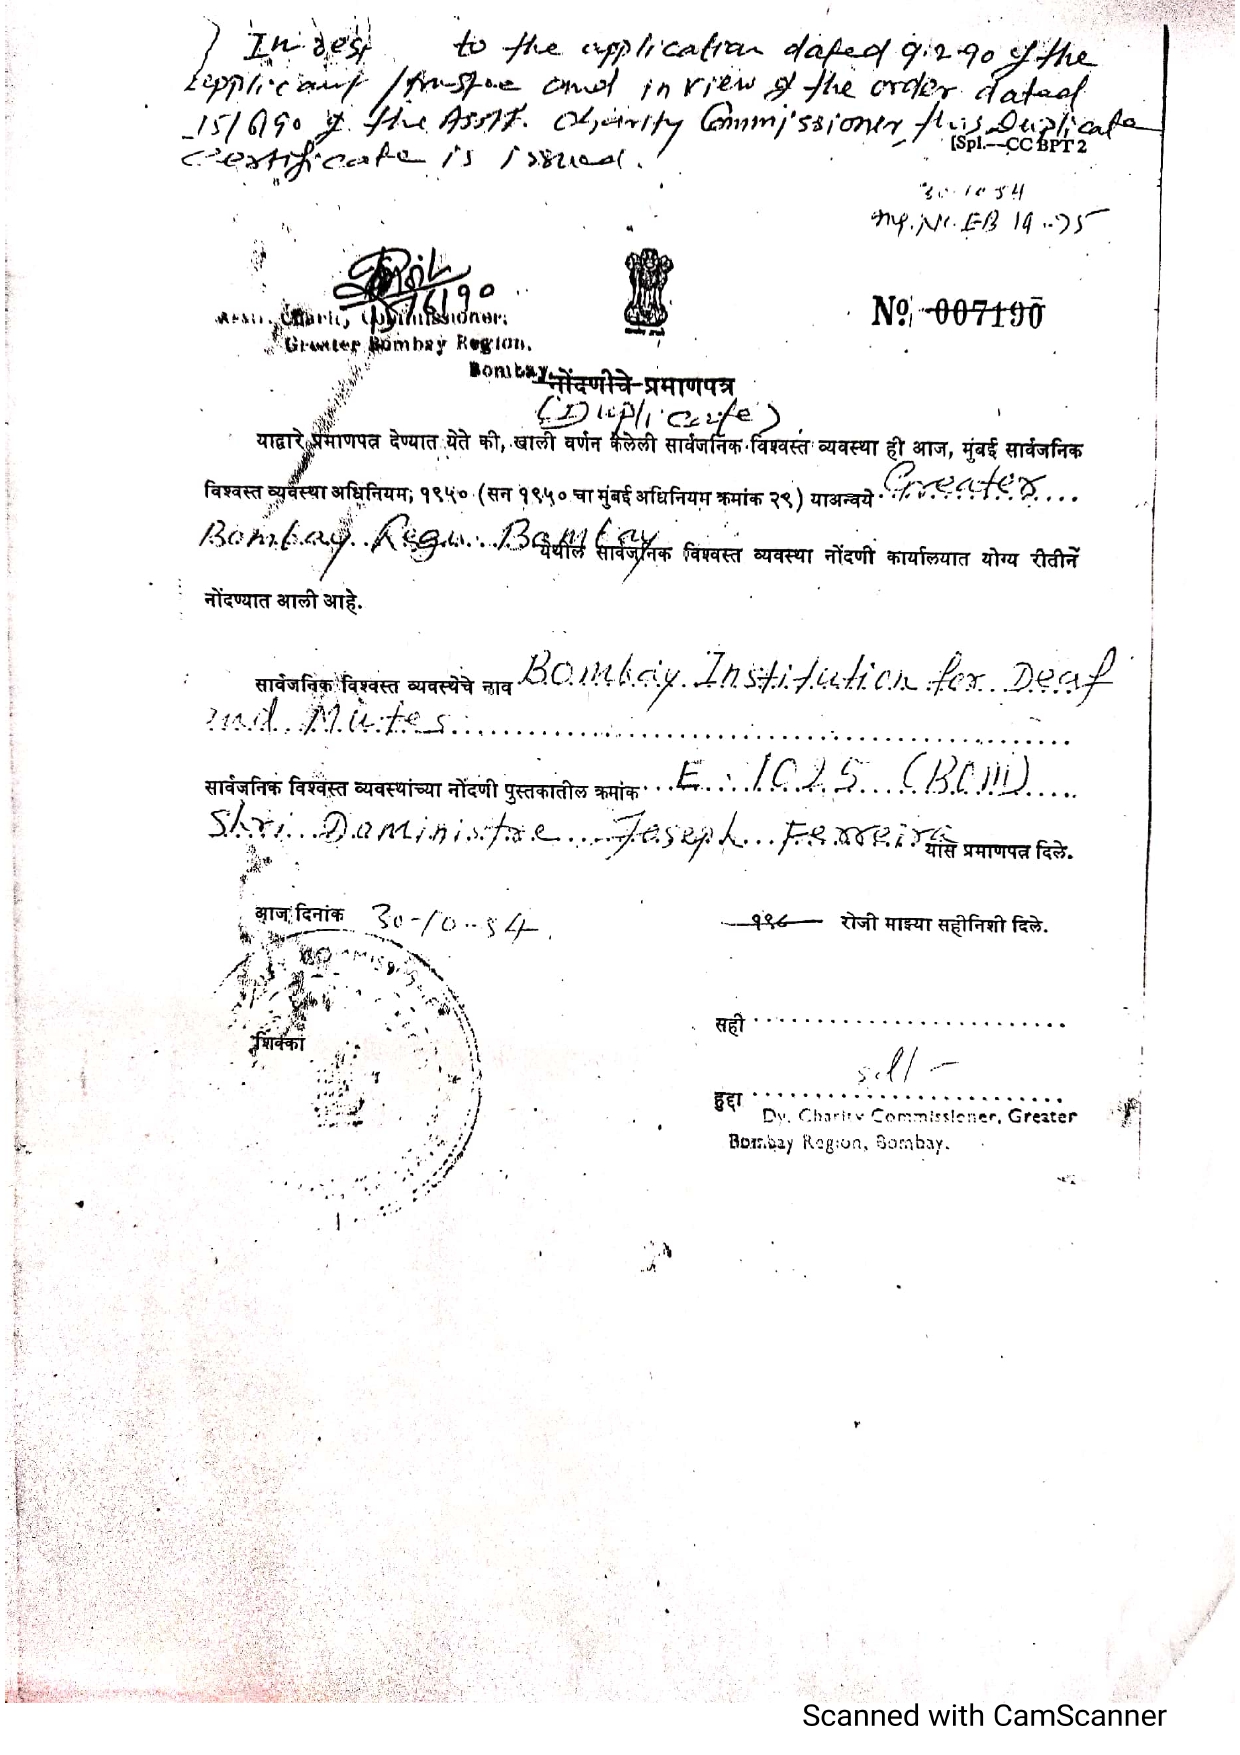 to the application dated 9.2.90 of the
applicant /trustee and in view of the order dated
15/6/90 of the Asstt. Charity Commissioner this Duplicate
Certificate is issued.
[Spl.—CC BPT 2
30.10.54
15/6/90
Asstt. Charity Commissioner,
Greater Bombay Region,
Bombay.
No. 007190
नोंदणीचे प्रमाणपत्र
(Duplicate)
याद्वारे प्रमाणपत्र देण्यात येते की, खाली वर्णन केलेली सार्वजनिक विश्वस्त व्यवस्था ही आज, मुंबई सार्वजनिक
विश्वस्त व्यवस्था अधिनियम, १९५० (सन १९५० चा मुंबई अधिनियम क्रमांक २९) याअन्वये Greater
Bombay Regn. Bombay येथील सार्वजनिक विश्वस्त व्यवस्था नोंदणी कार्यालयात योग्य रीतीनें
नोंदण्यात आली आहे.
सार्वजनिक विश्वस्त व्यवस्थेचे नाव Bombay Institution for Deaf
and Mutes
सार्वजनिक विश्वस्त व्यवस्थांच्या नोंदणी पुस्तकातील क्रमांक E. 1025 (BOM)
Shri Joseph Ferreira यांस प्रमाणपत्र दिले.
आज दिनांक 30-10-54. १९८ रोजी माझ्या सहीनिशी दिले.
शिक्का
सही
sd/-
हुद्दा
Dy. Charity Commissioner, Greater
Bombay Region, Bombay.
Scanned with CamScanner